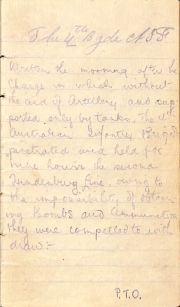 The 4th Bgde A.I.F
Written the morning after the
charge in which without
the aid of Artillery and sup
ported only by tanks, The 4th
Australian Infantry Brigd
penetrated and held for
nine hours the second
Hindenburg Line, owing to
the impossibility of obtain
ing Bombs and Ammunition
they were compelled to with
draw:-
P.T.O.